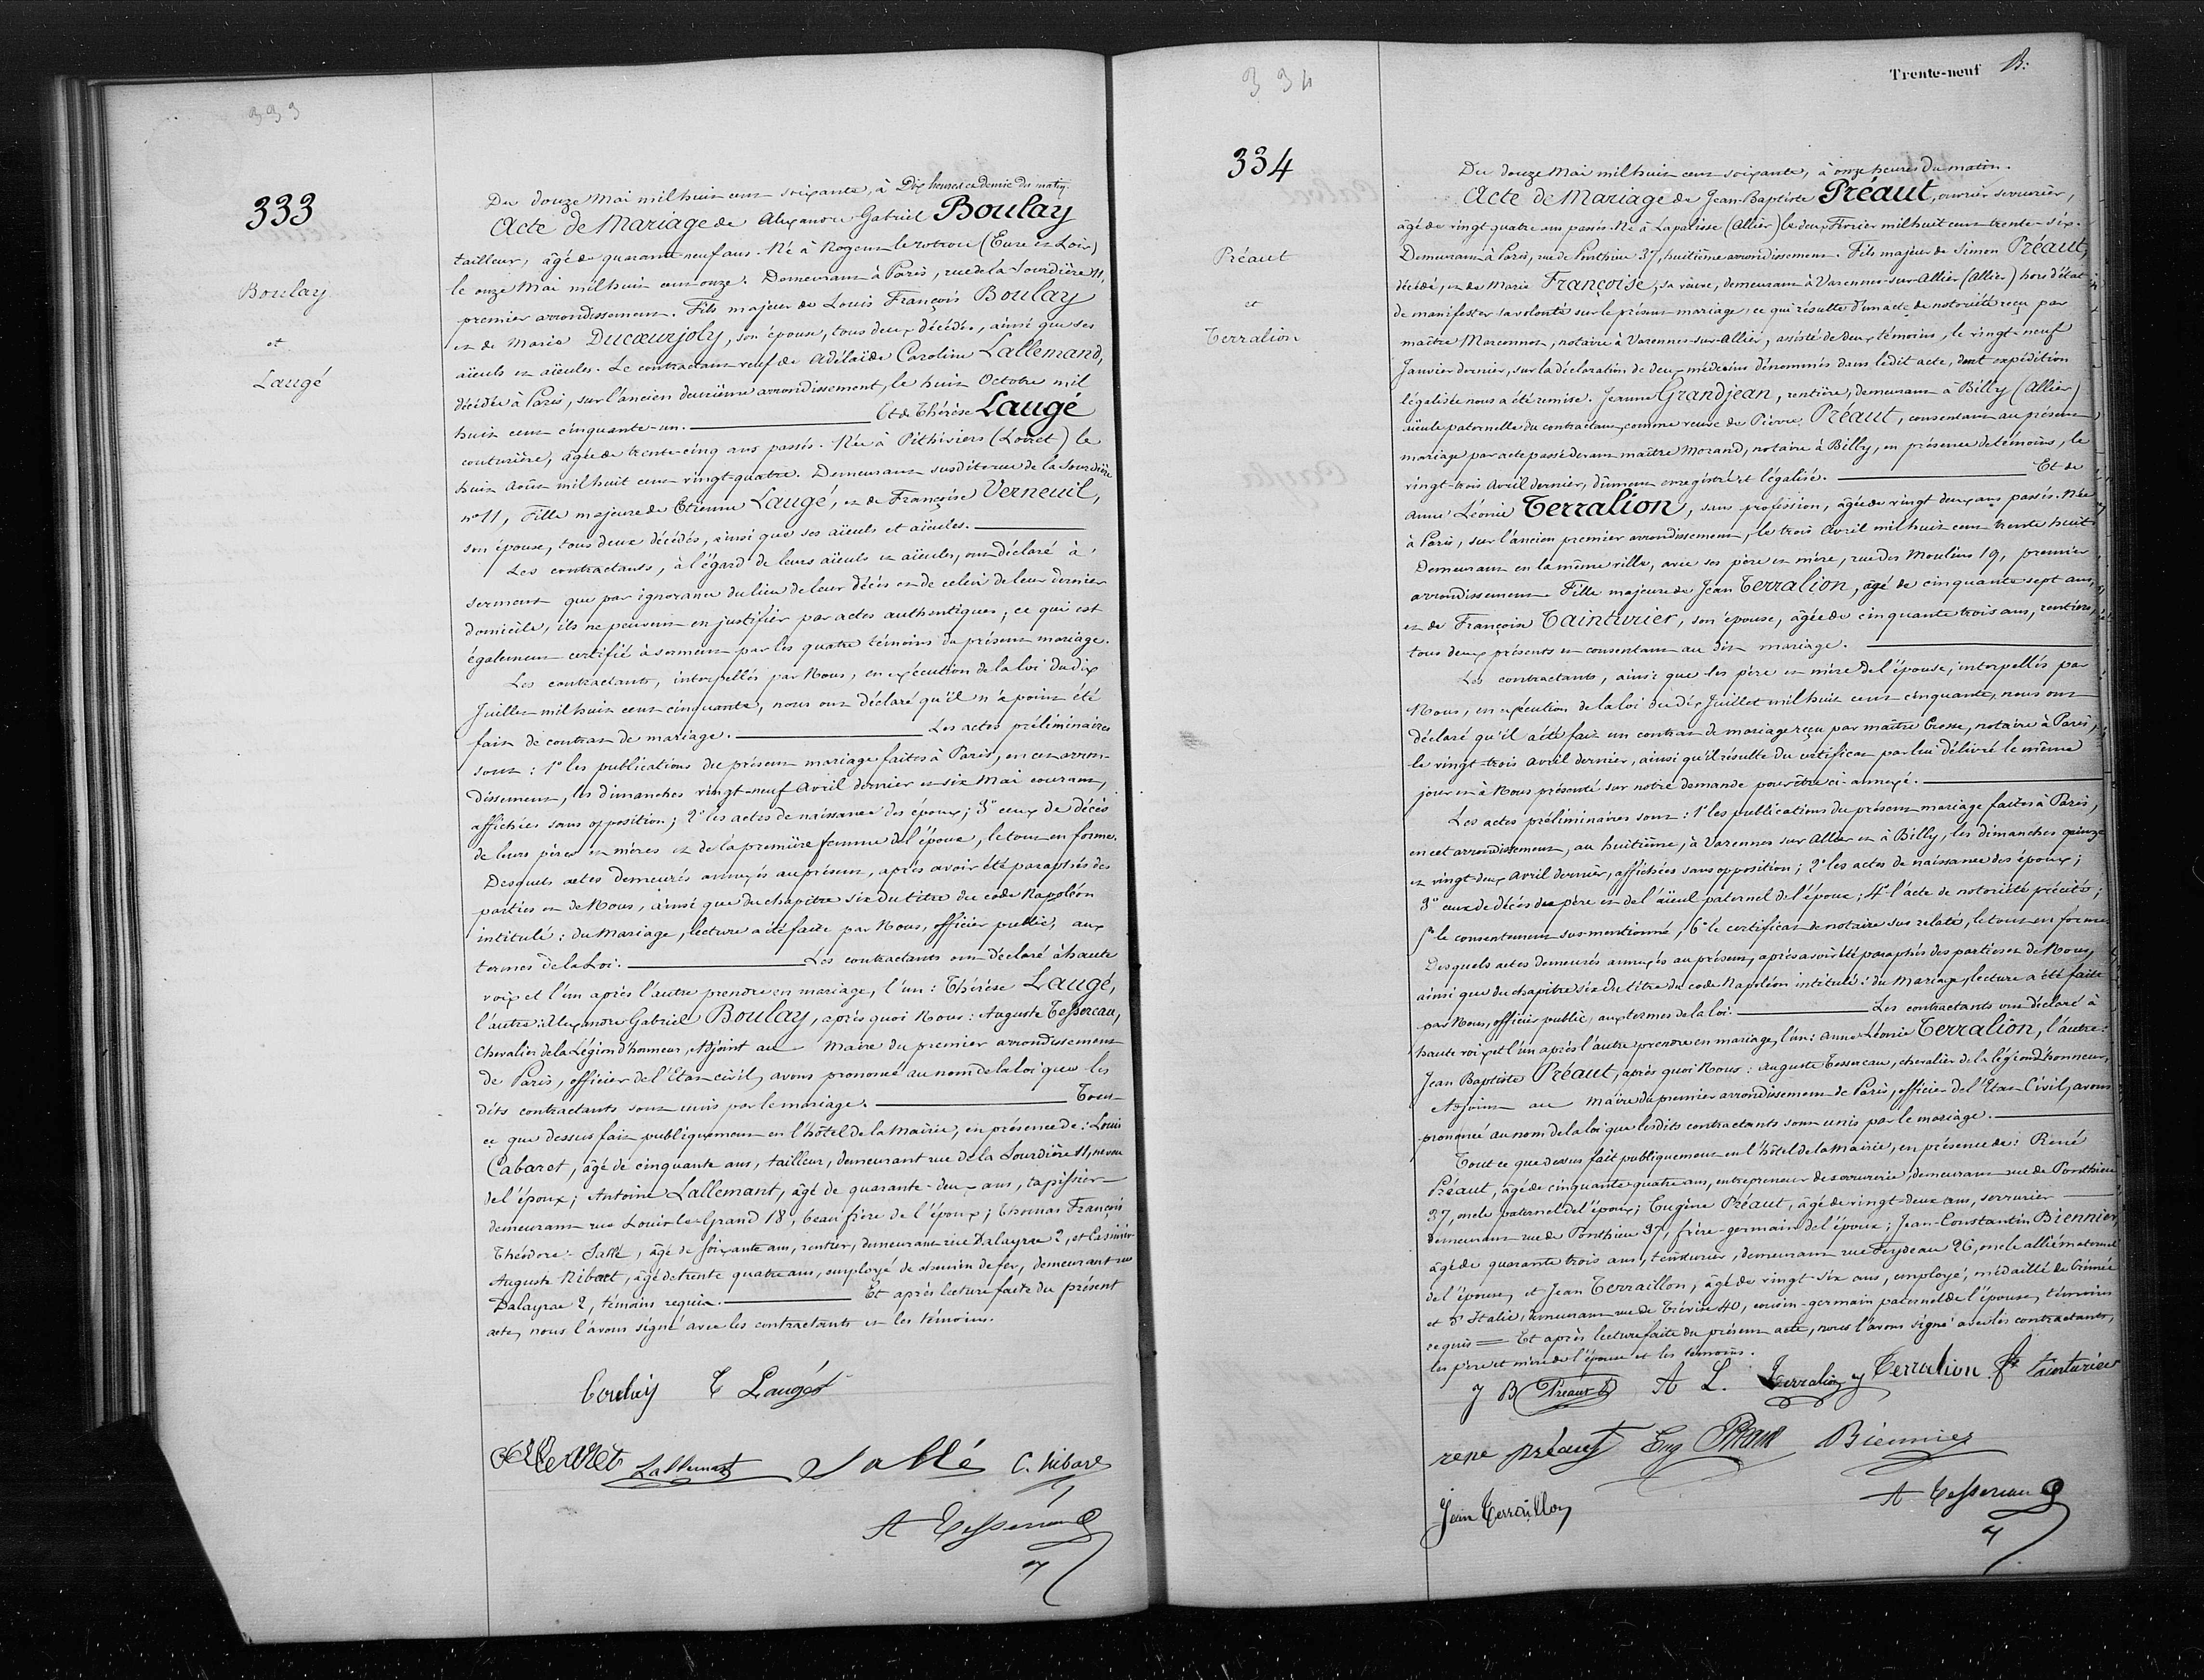 333
333
Boulay
et
Laugé
Du douze Mai mil huit cent soixante, à Dix heures et demie du matin.
Acte de Mariage de Alexandre Gabriel Boulay
tailleur, âgé de quarante neuf ans. Né à Nogent le rotrou (Eure et Loir)
le onze Mai mil huit cent onze. Demeurant à Paris, rue de la Sourdière 11,
premier arrondissement. Fils majeur de Louis François Boulay
et de Marie Ducœurjoly, son épouse, tous deux décédés, ainsi que ses
aïeuls et aïeules. Le contractant veuf de Adélaïde Caroline Lallemand,
décédée à Paris, sur l'ancien deuxième arrondissement, le huit Octobre mil
huit cent cinquante-un. Et de Thérèse Laugé
couturière, âgée de trente-cinq ans passés. Née à Pithiviers (Loiret) le
huit Août mil huit cent vingt-quatre. Demeurant susdite rue de la Sourdière
n° 11, Fille majeure de Etienne Laugé, et de Françoise Verneuil,
son épouse, tous deux décédés, ainsi que ses aïeuls et aïeules.
Les contractants, à l'égard de leurs aïeuls et aïeules, ont déclaré à
serment que par ignorance du lieu de leur décès et de celui de leur dernier
domicile, ils ne peuvent en justifier par actes authentiques; ce qui est
également certifié à serment par les quatre témoins du présent mariage.
Les contractants, interpellés par Nous, en exécution de la loi du dix
Juillet mil huit cent cinquante, nous ont déclaré qu'il n'a point été
fait de contrat de mariage. Les actes préliminaires
sont: 1° les publications du présent mariage faites à Paris, en cet arron-
dissement, les dimanches vingt-neuf Avril dernier et six Mai courant,
affichées sans opposition; 2° les actes de naissance des époux; 3° ceux de décès
de leurs pères et mères et de la première femme de l'époux, le tout en forme.
Desquels actes demeurés annexés au présent, après avoir été paraphés des
parties et de Nous, ainsi que du chapitre six du titre du code Napoléon
intitulé: du Mariage, lecture a été faite par Nous, officier public, aux
termes de la Loi. Les contractants ont déclaré à haute
voix et l'un après l'autre prendre en mariage, l'un: Thérèse Laugé,
l'autre: Alexandre Gabriel Boulay, après quoi Nous: Auguste Tessereau,
Chevalier de la Légion d'honneur, Adjoint au Maire du premier arrondissement
de Paris, officier de l'Etat civil, avons prononcé au nom de la loi que les
dits contractants sont unis par le mariage. Tout
ce que dessus fait publiquement en l'hôtel de la Mairie, en présence de: Louis
Cabaret, âgé de cinquante ans, tailleur, demeurant rue de la Sourdière 11, neveu
de l'époux; Antoine Lallemant, âgé de quarante-deux ans, tapissier
demeurant rue Louis-le-Grand 18, beau frère de l'époux; Thomas François
Théodore Sallé, âgé de soixante ans, rentier, demeurant rue Dalayrac 2, et Casimir
Auguste Nibart, âgé de trente quatre ans, employé de chemin de fer, demeurant rue
Dalayrac 2, témoins requis. Et après lecture faite du présent
acte, nous l'avons signé avec les contractants et les témoins.
Boulay T Laugé
Lallemant Sallé C. Nibart
A Tessereau
Trente-neuf
334
334
Préaut
et
Terralion
Du douze Mai mil huit cent soixante, à onze heures du matin.
Acte de Mariage de Jean-Baptiste Préaut, ouvrier serrurier,
âgé de vingt quatre ans passés. Né à Lapalisse (Allier) le deux Février mil huit cent trente-six.
Demeurant à Paris, rue de Ponthieu 37, huitième arrondissement. Fils majeur de Simon Préaut,
décédé, et de Marie Françoise, sa veuve, demeurant à Varennes-sur-Allier (Allier) hors d'état
de manifester sa volonté sur le présent mariage, ce qui résulte d'un acte de notoriété reçu par
maître Marconnot, notaire à Varennes-sur-Allier, assisté de deux témoins, le vingt-neuf
Janvier dernier, sur la déclaration de deux médecins dénommés dans ledit acte, dont expédition
légalisée nous a été remise. Jeanne Grandjean, rentière, demeurant à Billy (Allier)
aïeule paternelle du contractant, comme veuve de Pierre Préaut, consentant au présent
mariage par acte passé devant maître Morand, notaire à Billy, en présence de témoins, le
vingt-trois Avril dernier, dûment enregistré et légalisé. Et de
Anne Léonie Terralion, sans profession, âgée de vingt deux ans passés. Née
à Paris, sur l'ancien premier arrondissement, le trois Avril mil huit cent trente huit
Demeurant en la même ville, avec ses père et mère, rue des Moulins 19, premier
arrondissement. Fille majeure de Jean Terralion, âgé de cinquante sept ans,
et de Françoise Tainturier, son épouse, âgée de cinquante trois ans, rentiers,
tous deux présents et consentant au dit mariage.
Les contractants, ainsi que les père et mère de l'épouse, interpellés par
Nous, en exécution de la loi du dix Juillet mil huit cent cinquante, nous ont
déclaré qu'il a été fait un contrat de mariage reçu par maître Crosse, notaire à Paris,
le vingt-trois Avril dernier, ainsi qu'il résulte du certificat par lui délivré le même
jour et à Nous présenté sur notre demande pour être ci-annexé.
Les actes préliminaires sont: 1° les publications du présent mariage faites à Paris,
en cet arrondissement, au huitième, à Varennes sur Allier et à Billy, les dimanches quinze
et vingt-deux Avril dernier, affichées sans opposition; 2° les actes de naissance des époux;
3° ceux de décès du père et de l'aïeul paternel de l'époux; 4° l'acte de notoriété précité;
5° le consentement sus-mentionné, 6° le certificat de notaire sus relaté, le tout en forme
Desquels actes demeurés annexés au présent, après avoir été paraphés des parties et de Nous,
ainsi que du chapitre six du titre du code Napoléon intitulé: du Mariage, lecture a été faite
par Nous, officier public, aux termes de la loi. Les contractants ont déclaré à
haute voix et l'un après l'autre prendre en mariage, l'un: Anne Léonie Terralion, l'autre:
Jean Baptiste Préaut, après quoi Nous: Auguste Tessereau, chevalier de la légion d'honneur,
Adjoint au Maire du premier arrondissement de Paris, officier de l'Etat Civil, avons
prononcé au nom de la loi que lesdits contractants sont unis par le mariage.
Tout ce que dessus fait publiquement en l'hôtel de la Mairie, en présence de: René
Préaut, âgé de cinquante quatre ans, entrepreneur de serrurerie, demeurant rue de Ponthieu
37, oncle paternel de l'époux; Eugène Préaut, âgé de vingt-deux ans, serrurier
demeurant rue de Ponthieu 37, frère germain de l'époux; Jean-Constantin Biennier,
âgé de quarante trois ans, teinturier, demeurant rue Feydeau 26, oncle allié maternel
de l'épouse, et Jean Terraillon, âgé de vingt-six ans, employé, médaillé de Crimée
et d'Italie, demeurant rue de Trévise 40, cousin-germain paternel de l'épouse, témoins
requis = Et après lecture faite du présent acte, nous l'avons signé avec les contractants,
les père et mère de l'épouse et les témoins.
J B Préaut A L. Terralion J Terralion fe tainturier
rene préaut Eug Préaut Biennier
Jean Terraillon A Tessereau